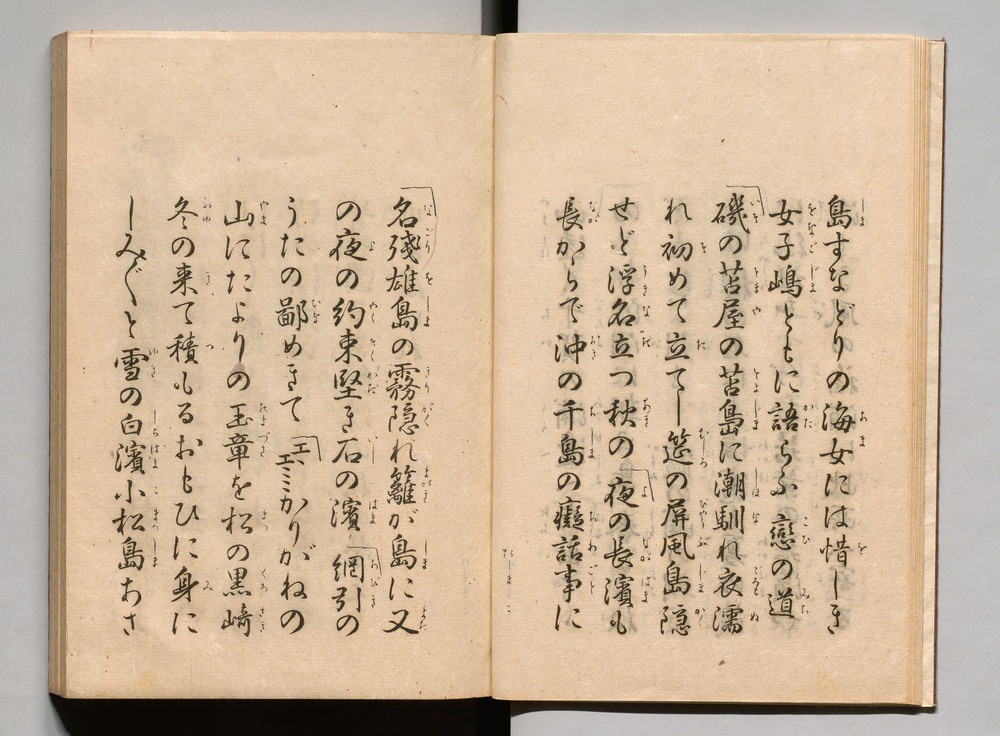 島すなどりの海女には惜しき
女子嶋ともに語らふ戀の道
磯の苫屋の苫島に潮馴れ衣濡
れ初めて立てし筵の屏風島隠
せど浮名立つ秋の夜の長濱も
長からで沖の千島の癡話事に
名殘雄島の霧隠れ籬が島に又
の夜の約束堅き石の濱網引の
うたの鄙めきてエヽエミかりがねの
山にたよりの玉章を松の黒崎
冬の来て積もるおもひに身に
しみ〴〵と雪の白濱小松島あさ